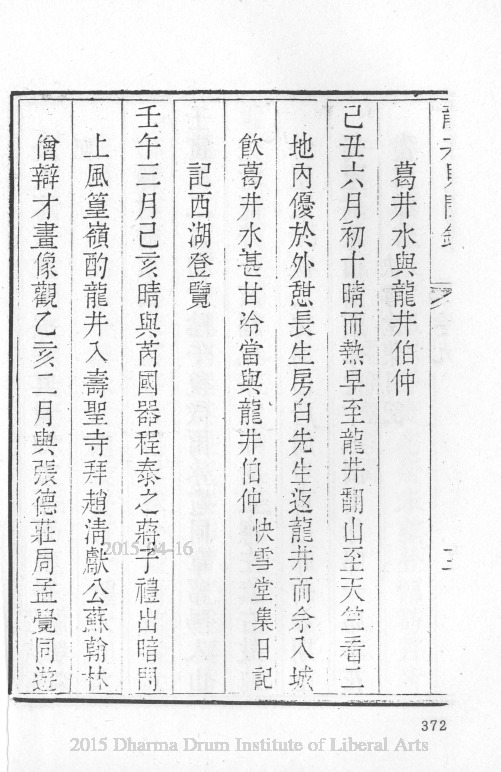 龍井見聞錄
葛井水與龍井伯仲
己丑六月初十晴而熱早至龍井翻山至天竺看一
地內優於外憇長生房白先生返龍井而余入城
飲葛井水甚甘冷當與龍井伯仲 快雪堂集日記
記西湖登覽
壬午三月己亥晴與芮國器程泰之蔣子禮出暗門
上風篁嶺酌龍井入壽聖寺拜趙清獻公蘇翰林
僧辯才畫像觀乙亥二月與張德莊周孟覺同遊
372
2015-04-16
2015 Dharma Drum Institute of Liberal Arts